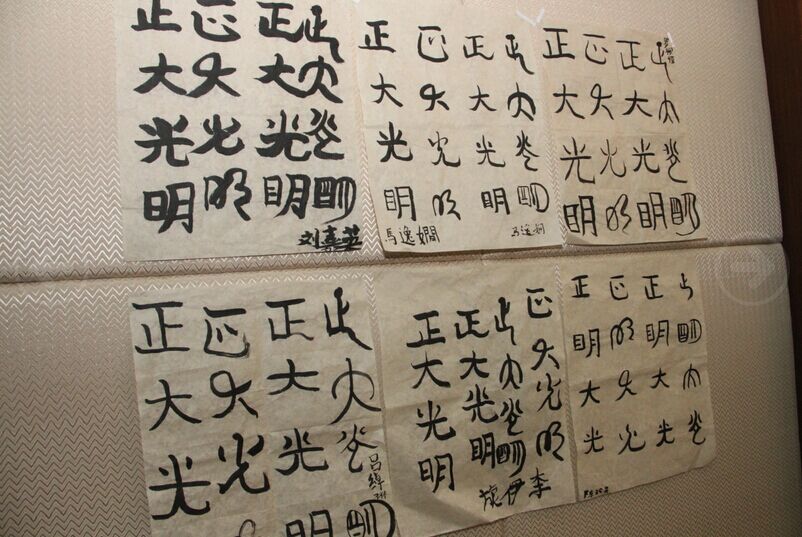 正大光明
正大光明
正大光明
正大光明
刘嘉英
正大光明
正大光明
正大光明
正大光明
馬逸
正大光明
正大光明
正大光明
正大光明
正大光
正大光
正大光明
正大光明
吕
正大光明
正大光明
正大光明
正大光明
伊李
正明大光
正明大光
正明大光
正明大光